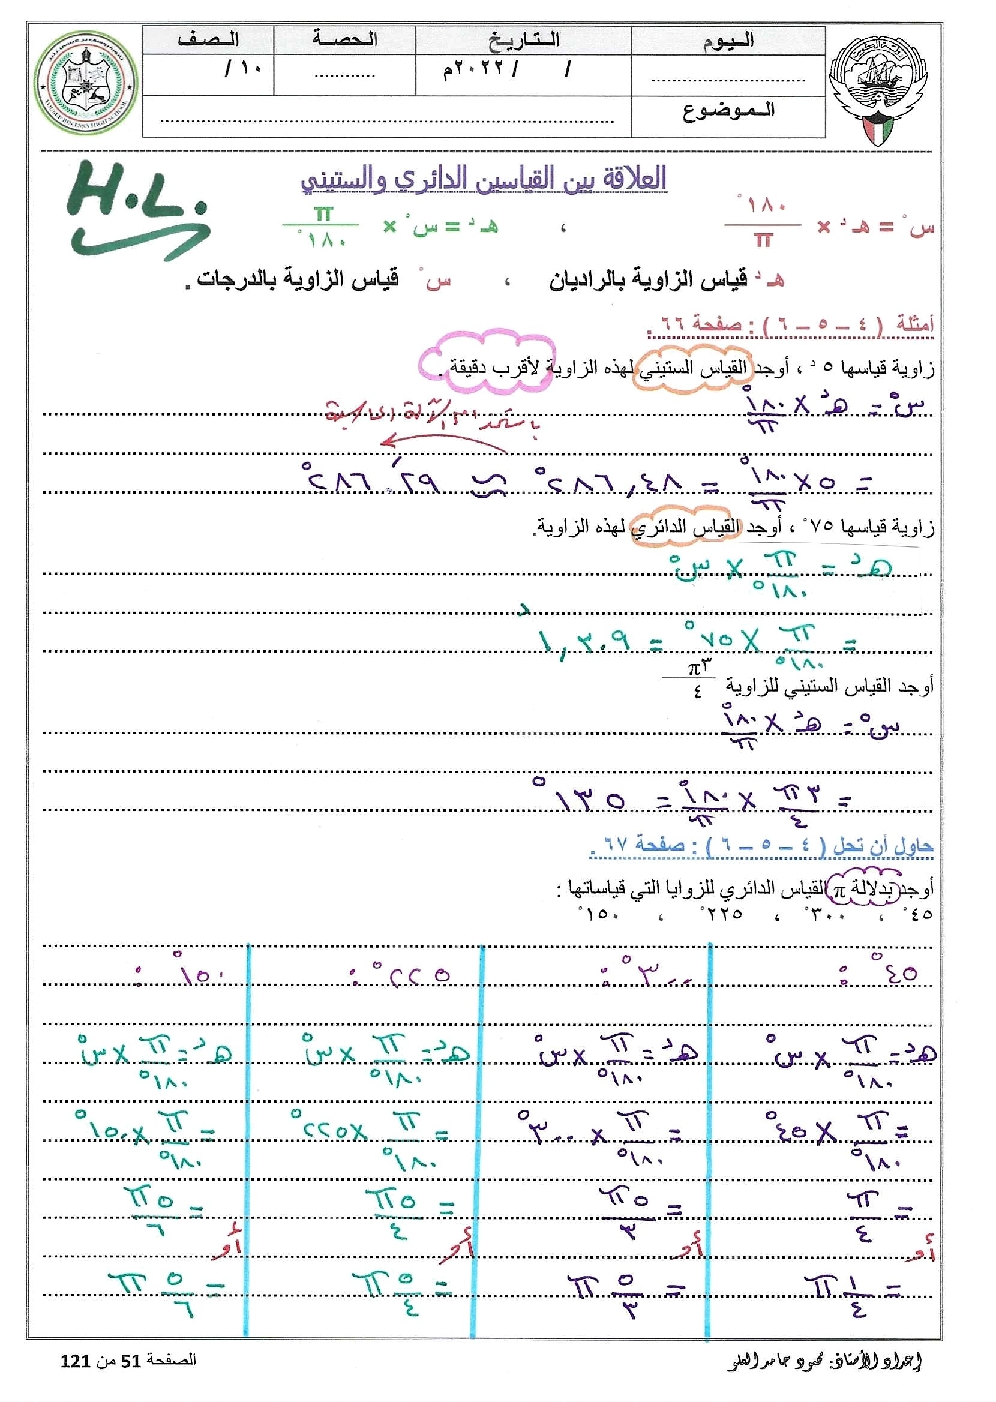 اليوم التاريخ الحصة الصف
.................... / / ٢٠٢٢م ............ ١٠ /
الموضوع ....................
H.L.
العلاقة بين القياسين الدائري والستيني
س° = هـ د × ١٨٠° / π ، هـ د = س° × π / ١٨٠°
هـ د قياس الزاوية بالراديان ، س° قياس الزاوية بالدرجات .
أمثلة ( ٤ – ٥ – ٦ ) : صفحة ٦٦ .
زاوية قياسها ٥ د ، أوجد القياس الستيني لهذه الزاوية لأقرب دقيقة .
س° = هـ د × ١٨٠° / π
باستخدام الآلة الحاسبة
= ٥ × ١٨٠° / π = ٢٨٦,٤٨° ≈ ٢٩′ ٢٨٦°
زاوية قياسها ٧٥° ، أوجد القياس الدائري لهذه الزاوية.
هـ د = π / ١٨٠° × س°
= π / ١٨٠° × ٧٥° = ١,٣٠٩ د
أوجد القياس الستيني للزاوية ٣π / ٤
س° = هـ د × ١٨٠° / π
= ٣π / ٤ × ١٨٠° / π = ١٣٥°
حاول أن تحل ( ٤ – ٥ – ٦ ) : صفحة ٦٧ .
أوجد بدلالة π القياس الدائري للزوايا التي قياساتها :
٤٥° ، ٣٠٠° ، ٢٢٥° ، ١٥٠°
٤٥° : ٣٠٠° : ٢٢٥° : ١٥٠° :
هـ د = π / ١٨٠° × س° هـ د = π / ١٨٠° × س° هـ د = π / ١٨٠° × س° هـ د = π / ١٨٠° × س°
= π / ١٨٠° × ٤٥° = π / ١٨٠° × ٣٠٠° = π / ١٨٠° × ٢٢٥° = π / ١٨٠° × ١٥٠°
= π / ٤ = ٥π / ٣ = ٥π / ٤ = ٥π / ٦
أو أو أو أو
= ١ / ٤ π = ٥ / ٣ π = ٥ / ٤ π = ٥ / ٦ π
إعداد الأستاذ: محمود حامد العلو
الصفحة 51 من 121